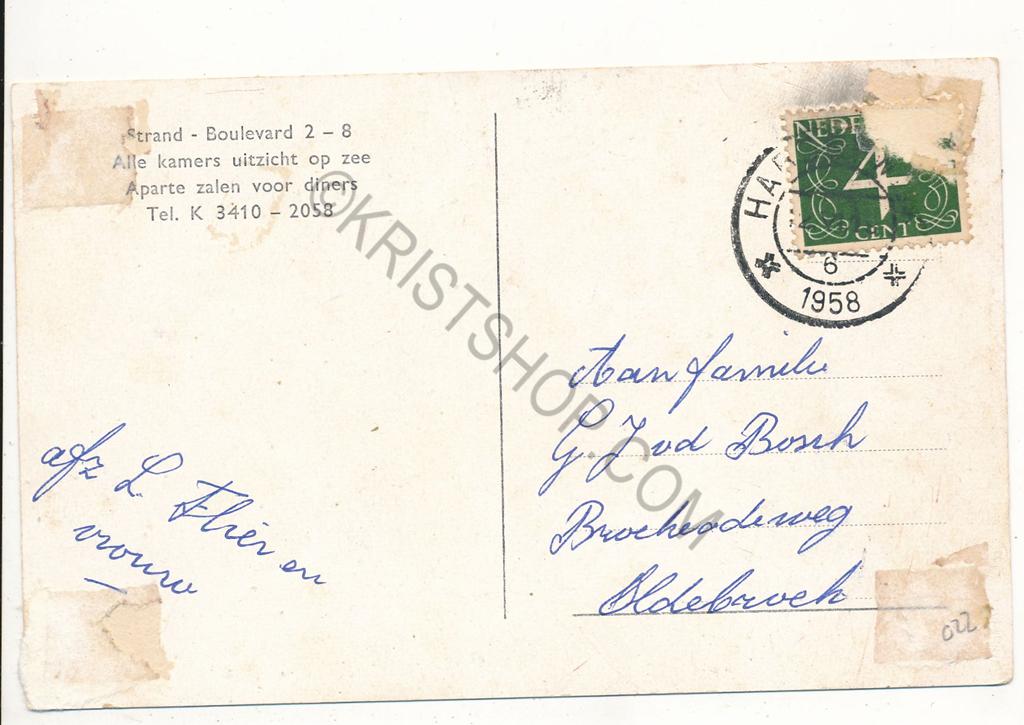 Strand - Boulevard 2 - 8
Alle kamers uitzicht op zee
Aparte zalen voor diners
Tel. K 3410 - 2058
NEDE
4
CENT
HA
6
1958
©KRISTSHOP.COM
Aan familie
G. J vd Bosch
Oldebroek
afz L. Flier en
vrouw
022